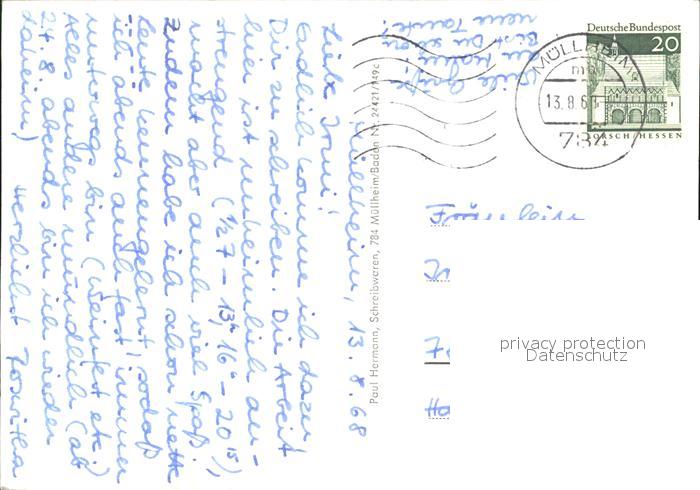 Müllheim, 13. 8. 68
Liebe Irmi!
Endlich komme ich dazu,
Dir zu schreiben. Die Arbeit
hier ist unheimlich an-
strengend (1/2 7 - 13h, 16h - 20 15),
macht aber auch viel Spaß.
Zudem habe ich schon nette
Leute kennengelernt, sodaß
ich abends auch fast immer
unterwegs bin (Weinfest etc.)
Alles andere mündlich (ab
24. 8. abends bin ich wieder
daheim) Herzlichst Roswitha
Viele Grüße
an Maria
Bist Du schon
neue Tante?
Paul Hermann, Schreibwaren, 784 Müllheim/Baden Nr. 24421/149c
Deutsche Bundespost
20
LORSCH HESSEN
MÜLLHEIM
13. 8. 68
784
Fräulein
Ir
Ha
privacy protection
Datenschutz